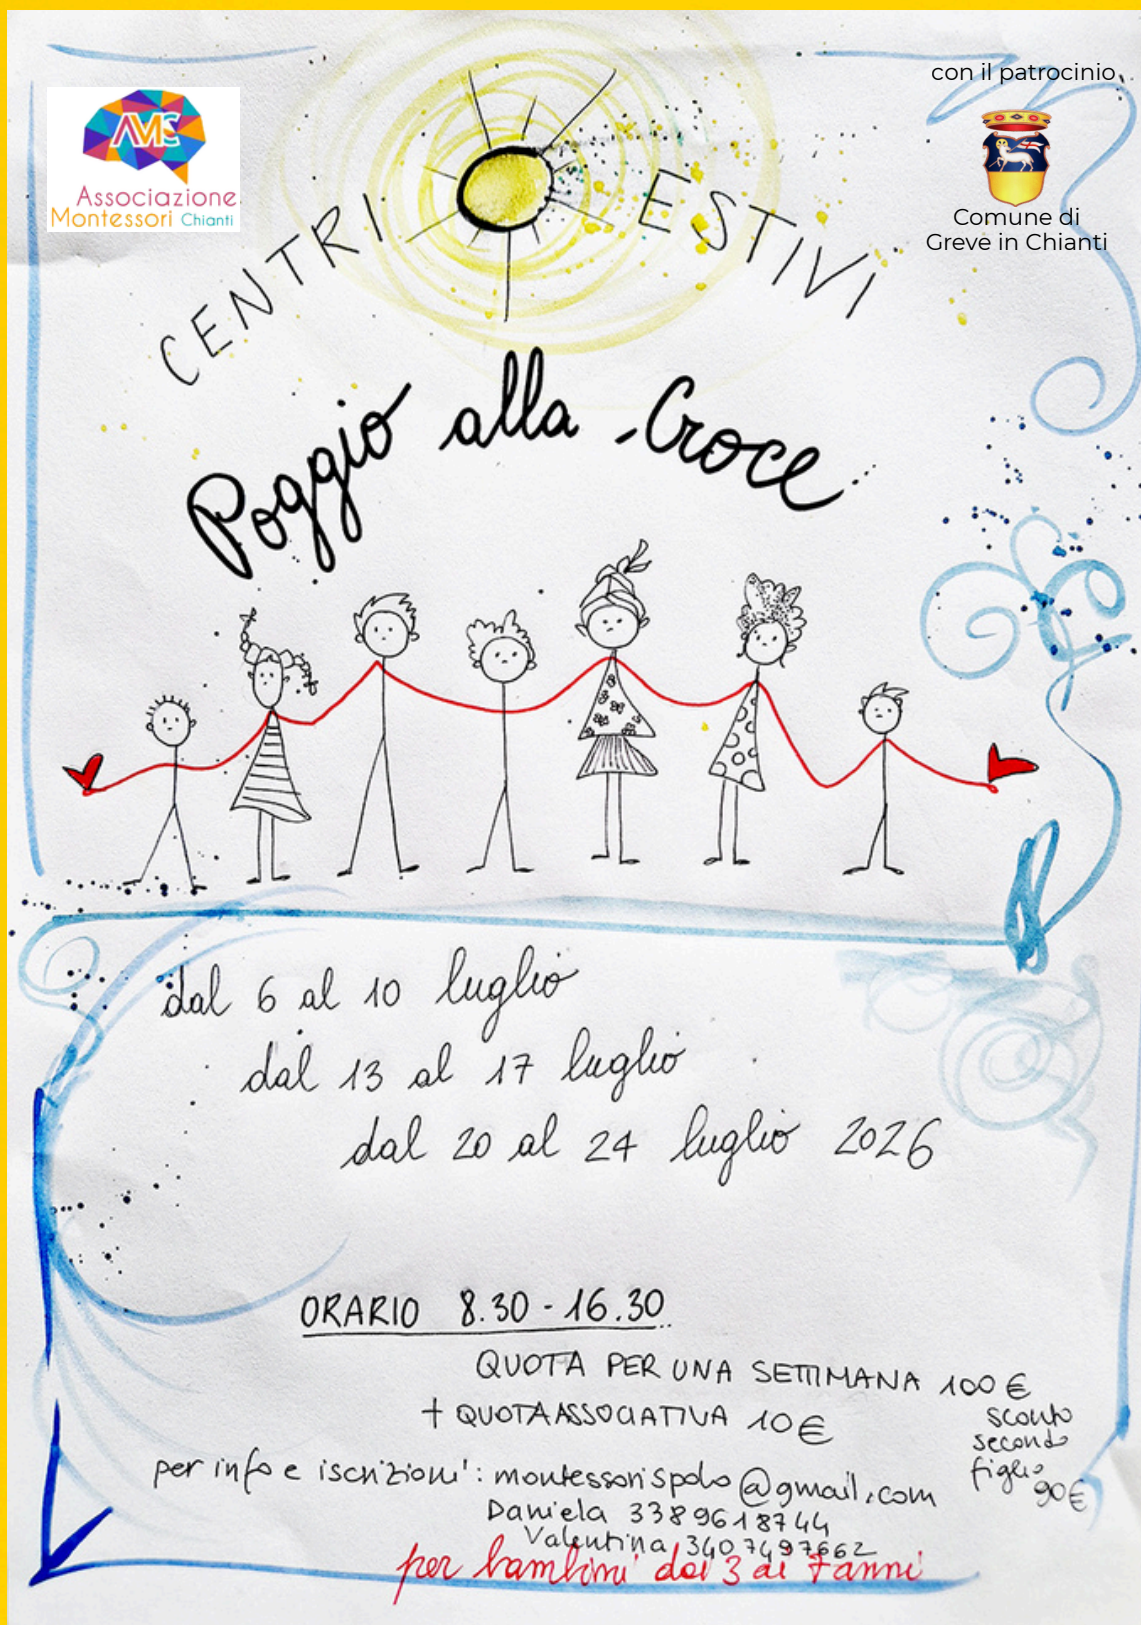 con il patrocinio
AMC
Associazione
Montessori Chianti
Comune di
Greve in Chianti
CENTRI ESTIVI
Poggio alla Croce
dal 6 al 10 luglio
dal 13 al 17 luglio
dal 20 al 24 luglio 2026
ORARIO 8.30-16.30
QUOTA PER UNA SETTIMANA 100 €
+ QUOTA ASSOCIATIVA 10 €
sconto
secondo
figlio
90 €
per info e iscrizioni: montessorispolo@gmail.com
Daniela 3389618744
Valentina 3407497662
per bambini dai 3 ai 7 anni